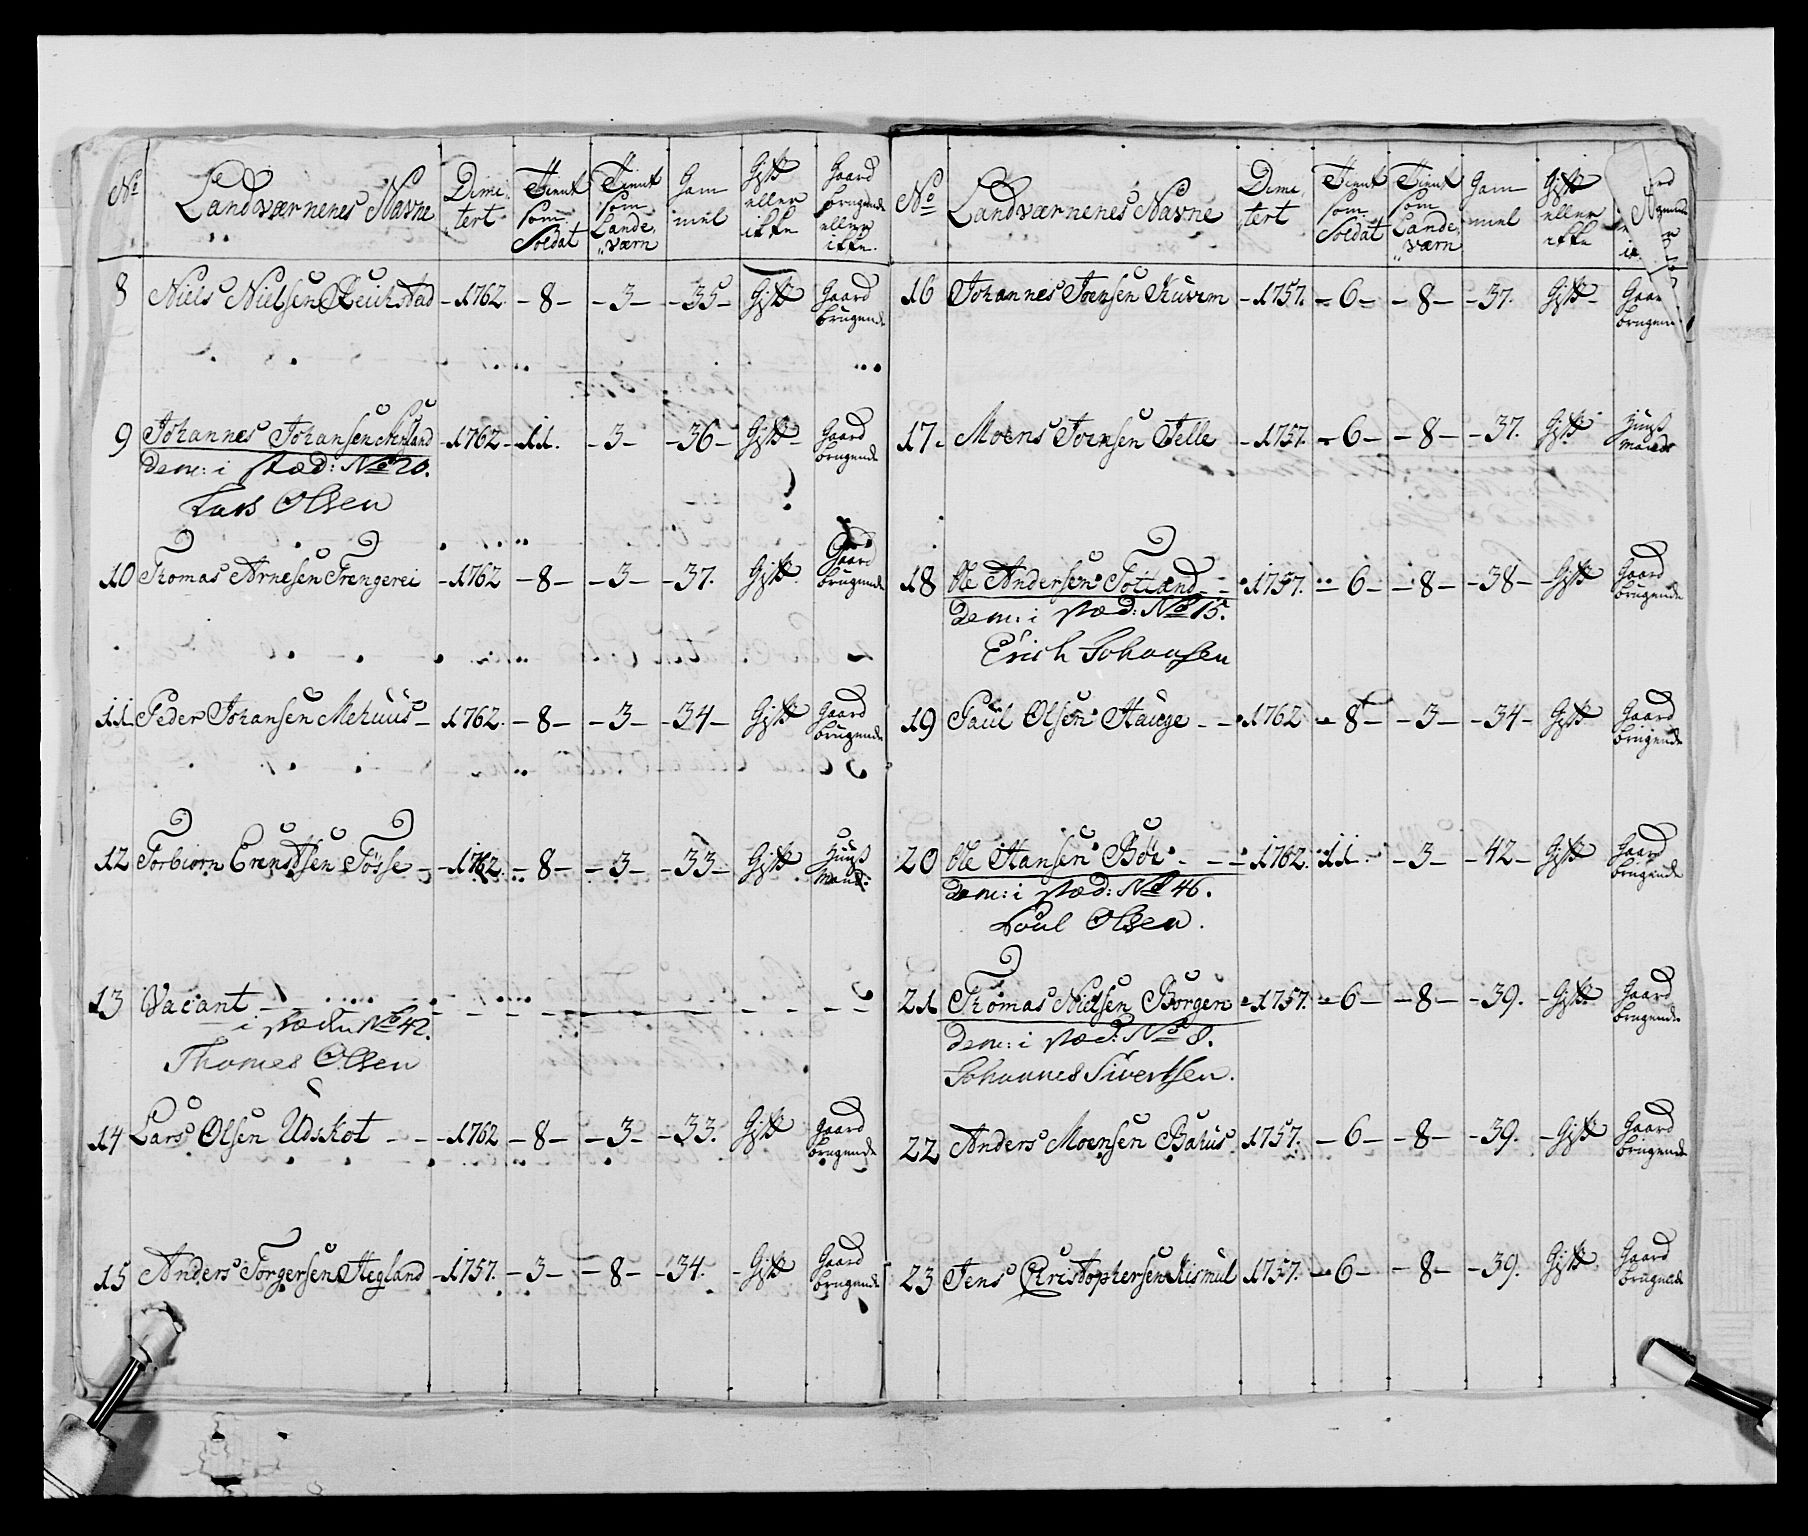 No Landværnenes Navne Dimi- tert Tient som Soldat Tient som Lande- værn Gam mel Gift eller ikke Gaard brugende eller ikke.
8 Niels Nielsen Reichstad - 1762. - 8 - - 3 - - 35 - Gift Gaard brugende
9 Johannes Johansen - 1762 - 11. - 3 - - 36 - Gift - Gaard brugende
Dem: i stæd: No 20.
Lars Olsen
10 Thomas Arnesen Trengerei - 1762 - 8 - - 3 - - 37. Gift. Gaard brugende
11 Peder Johansen Mehuus - 1762. - 8 - - 3 - - 34 - Gift Gaard brugende
12 Torbiorn Erenstsen Tösse - 1762. - 8 - - 3 - - 33 - Gift Huus Mand:
13 Vacant
i stæden No 42.
Thomes Olsen
14 Lars Olsen Udskot - - - 1762 - 8 - - 3 - - 33. Gift Gaard brugende
15 Anders Torgersen Hegland - 1757. - 3 - - 8 - - 34. - Gift Gaard brugende
No Landværnenes Navne Dimi- tert Tient som Soldat Tient som Lande- værn Gam mel Gift eller ikke
16 Johannes Joensen Kuven - 1757. - 6 - - 8 - - 37. Gift - Gaard brugende
17 - Moens Joensen Telle - 1757. - 6 - - 8 - - 37. Gift Huus Mand
18 Ole Andersen Totland - - 1757. - 6 - - 8 - - 38 - - Gift Gaard brugende
Dem: i stæd: No 15.
Erich Johansen
19 Paul Olsen Hauge - - 1762 - 8 - - 3 - - 34 - Gift Gaard brugende
20 Ole Hansen Bör - - - 1762. 11 - 3 - - 42 - Gift Gaard brugende
Dem: i stæd: No 46.
Poul Olsen.
21 Thomas Nielsen Borgen - 1757. - 6 - - 8 - - 39. - Gift Gaard brugende
Dem: i stæd: No 8.
Johannes Sivertsen.
22 Anders Moensen Bahus 1757. - 6 - - 8 - - 39. - Gift Gaard brugende
23 Jens Christophersen Kismul 1757. - 6 - - 8 - - 39. Gift Gaard brugende